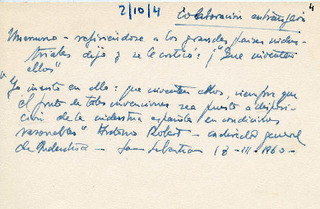 2/10/4
Colaboración extranjera
4
Unamuno - refiriéndose a los grandes países indus-
triales dijo y se le criticó: ¡"Que inventen
ellos"
"Yo insisto en ello: que inventen ellos, siempre que
el fruto de tales invenciones sea puesto a disposi-
ción de la industria española en condiciones
razonables" Antonio Robert - exdirector general
de Industria - San Sebastián 18-III-1960-